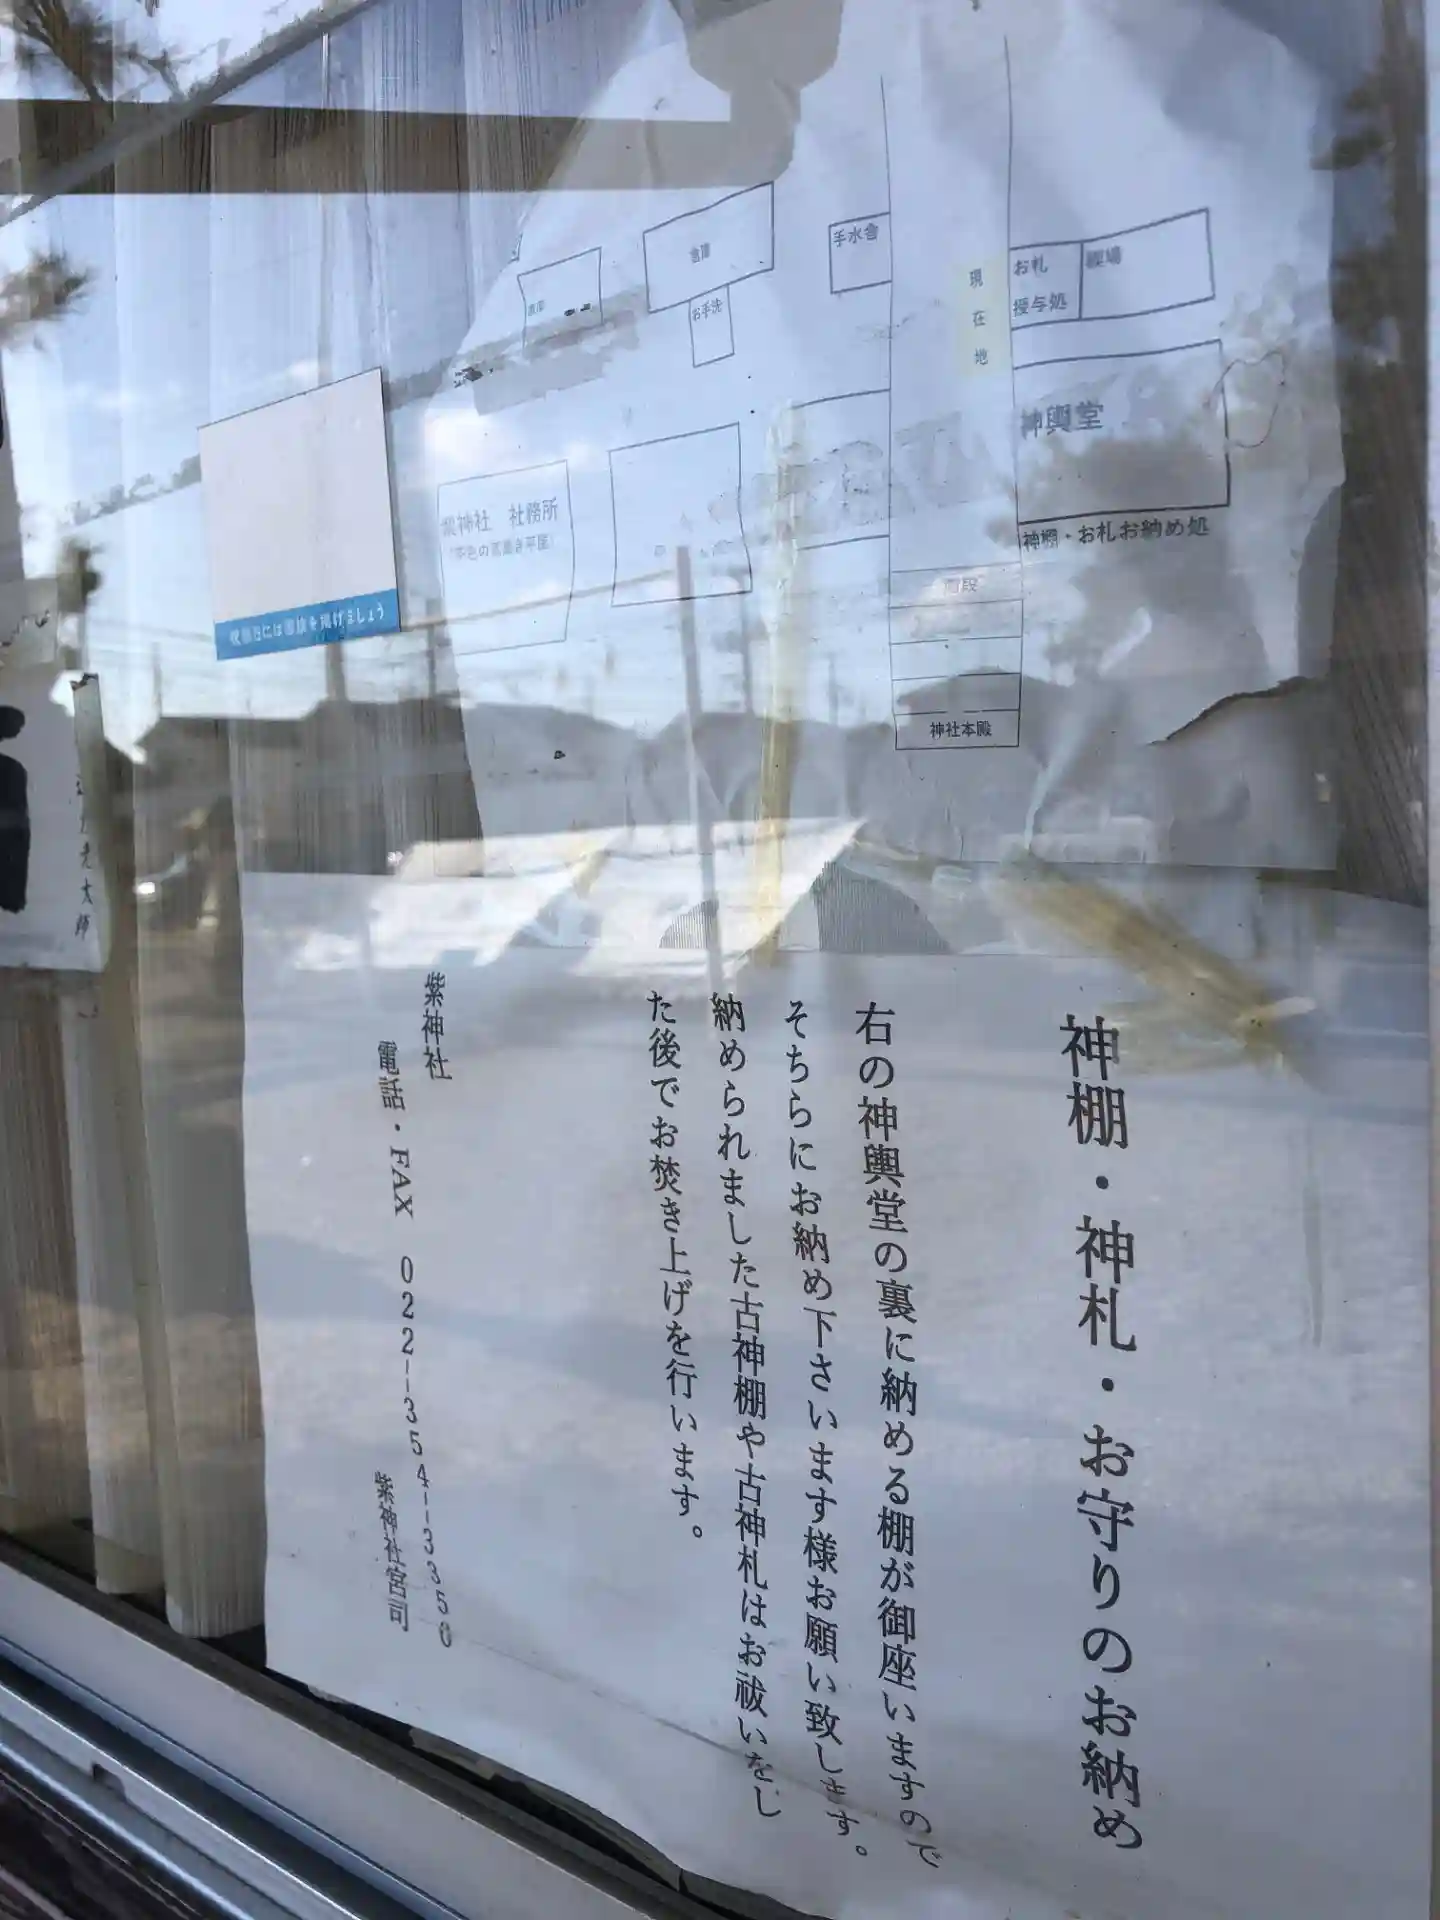 倉庫
お手洗
手水舎
現在地
お札
授与処
神輿堂
神棚・お札お納め処
紫神社 社務所
階段
神社本殿
祝祭日には国旗を掲げましょう
老大師
神棚・神札・お守りのお納め
右の神輿堂の裏に納める棚が御座いますので
そちらにお納め下さいます様お願い致します。
納められました古神棚や古神札はお祓いをし
た後でお焚き上げを行います。
紫神社
電話・FAX 022-354-3350
紫神社宮司